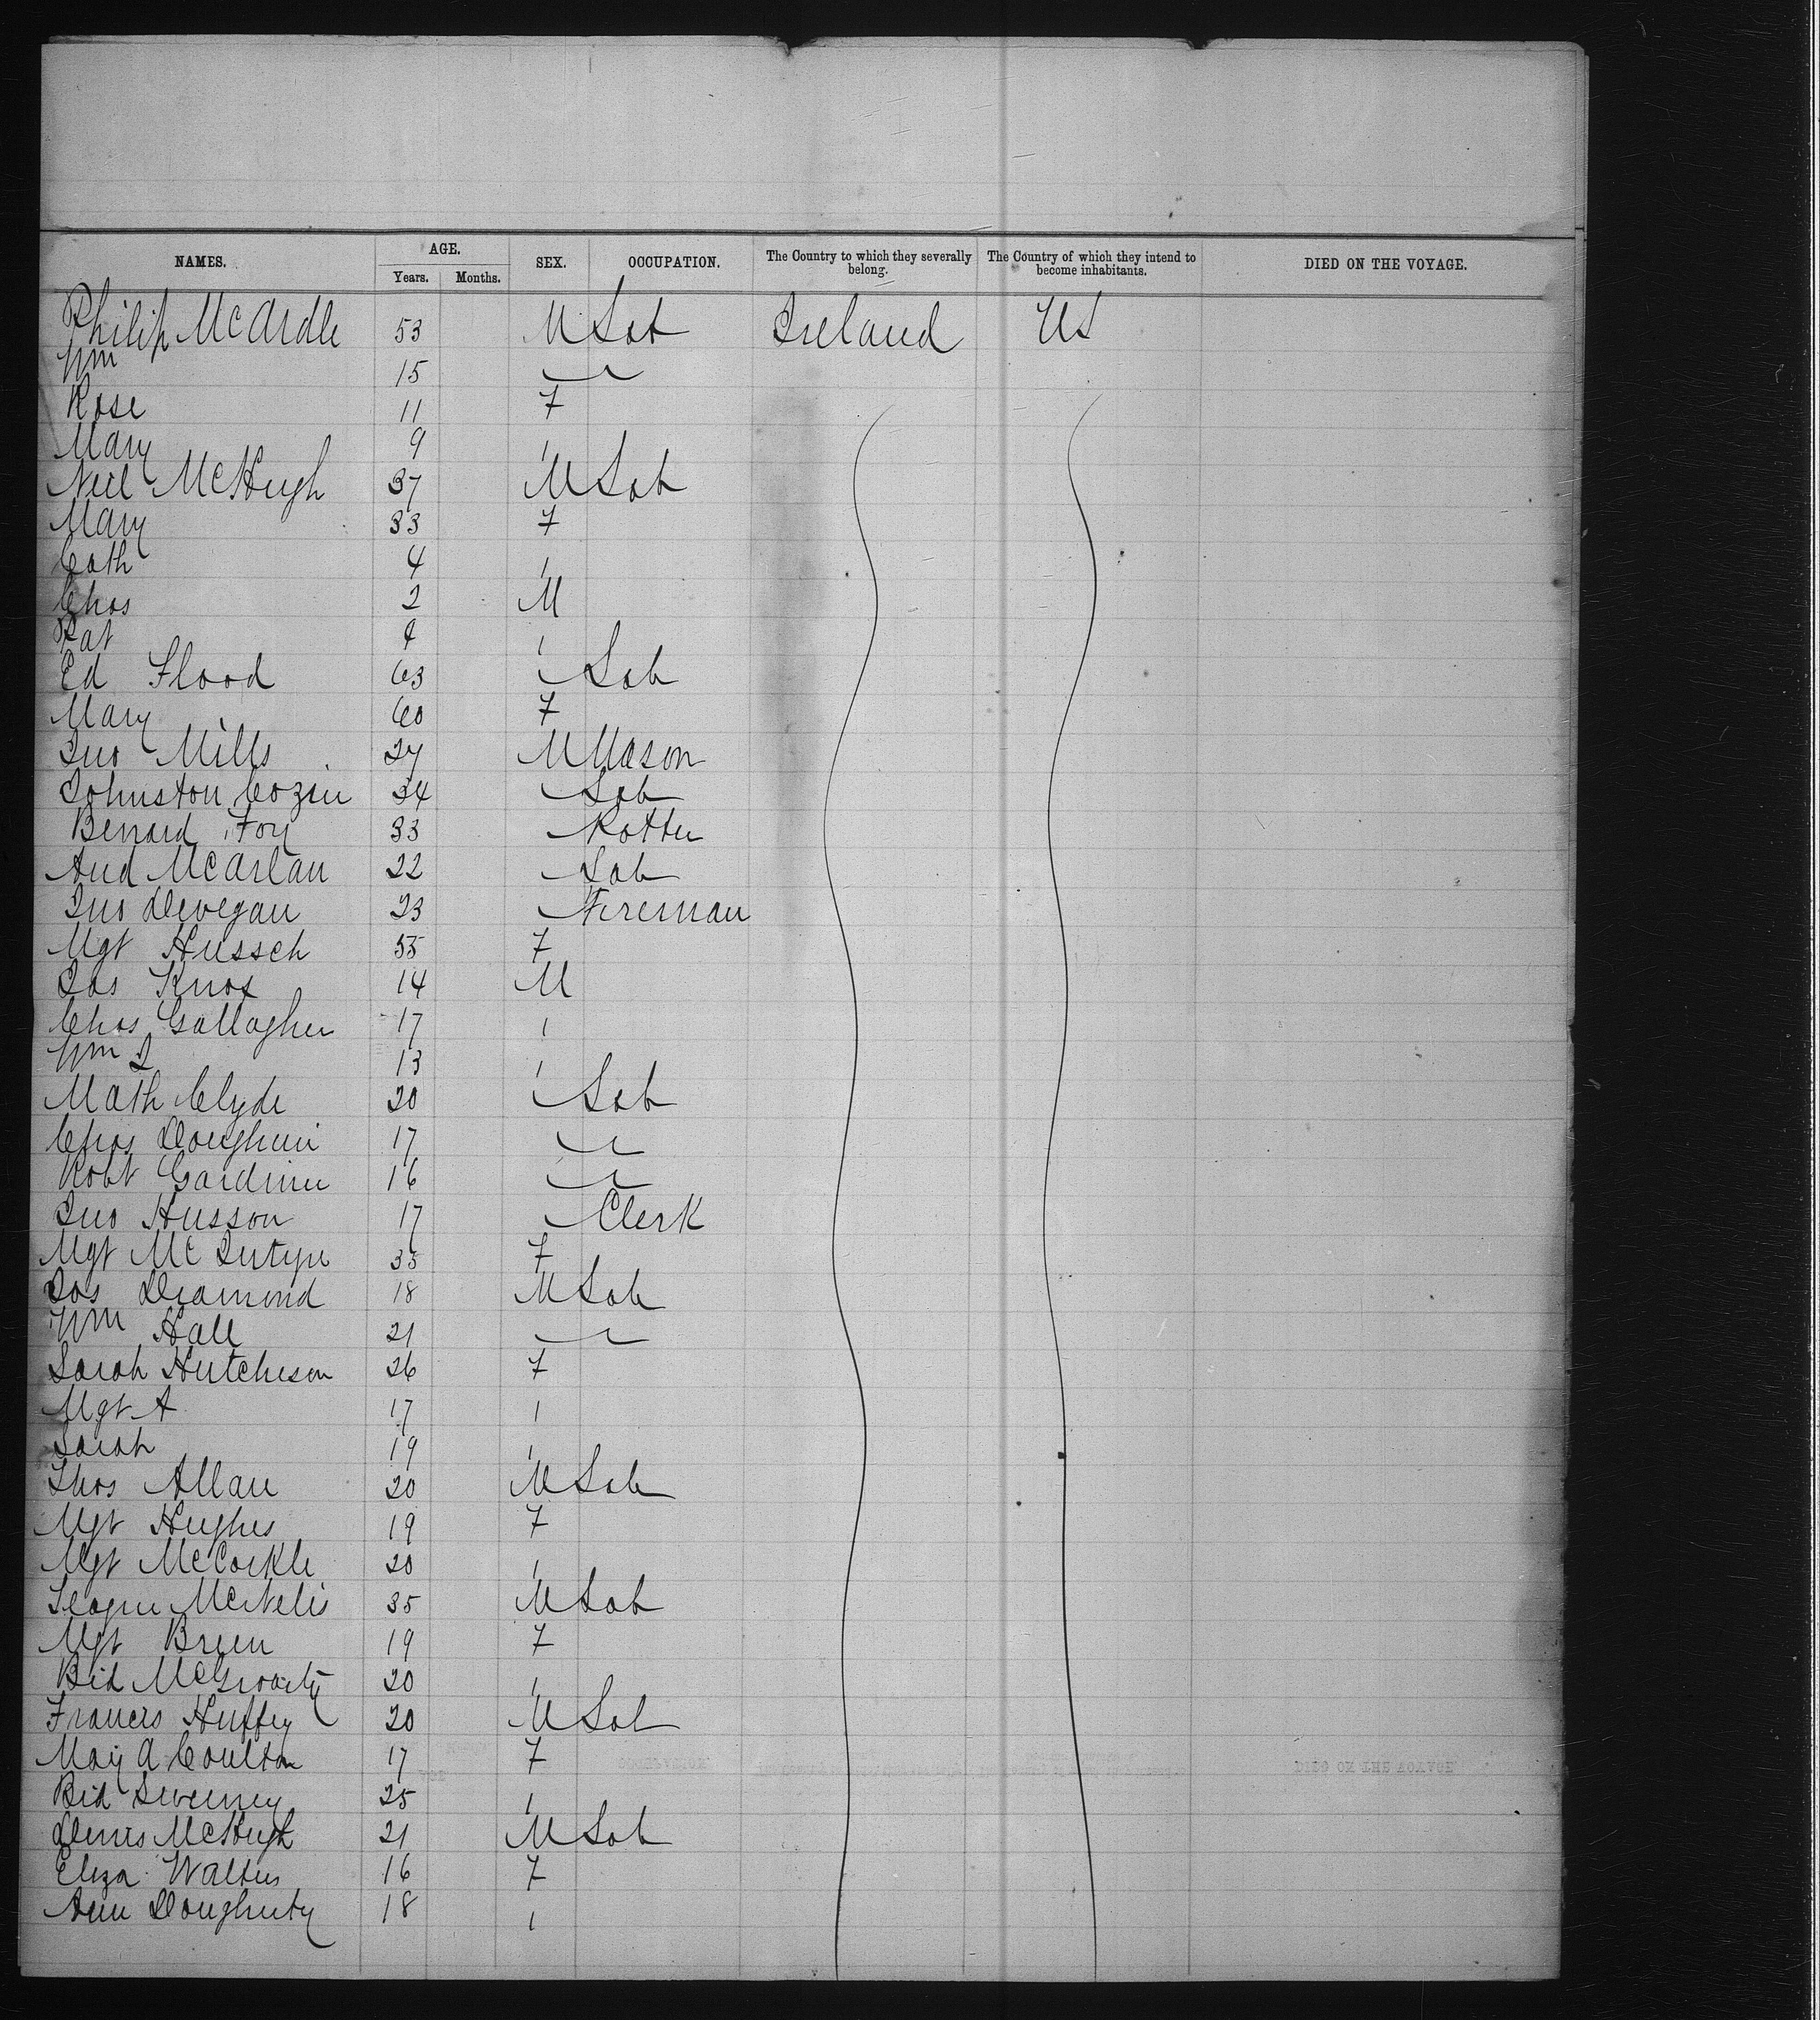 NAMES. AGE. SEX. OCCUPATION. The Country to which they severally belong. The Country of which they intend to become inhabitants. DIED ON THE VOYAGE.
Years. Months.
Philip McArdle 53 M Lab Ireland US
Wm 15
Rose 11 F
Mary 9 "
Neil McHugh 37 M Lab
Mary 33 F
Cath 4 "
Chas 2 M
Pat "
Ed Flood 63 " Lab
Mary 60 F
Jno Mills 27 M Mason
Johnston Cozin 34 Lab
Bernard Foy 33
And McArlan 22 Lab
Jno Devegan 23 Fireman
Mgt 55 F
Jas Knox 14 M
Chas Gallagher 17 "
Wm J 13 "
Math Clyde 20 " Lab
Chas 17
Robt Gardiner 16
Jno Husson 17 Clerk
Mgt McIntyre 35 F
Jas Diamond 18 M Lab
Wm Hall 21
Sarah Hutcheson 26 F
Mgt A 17 "
Sarah 19 "
Thos Allan 20 M Lab
Mgt Hughes 19 F
Mgt McCorkle 20 "
McNelis 35 M Lab
Mgt Breen 19 F
Bid McGroarty 20 "
Francis Huffey 20 M Lab
Mary A Coulton 17 F
Bid Sweeney 25 "
Denis McHugh 21 M Lab
Eliza Walters 16 F
Ann Dougherty 18 "